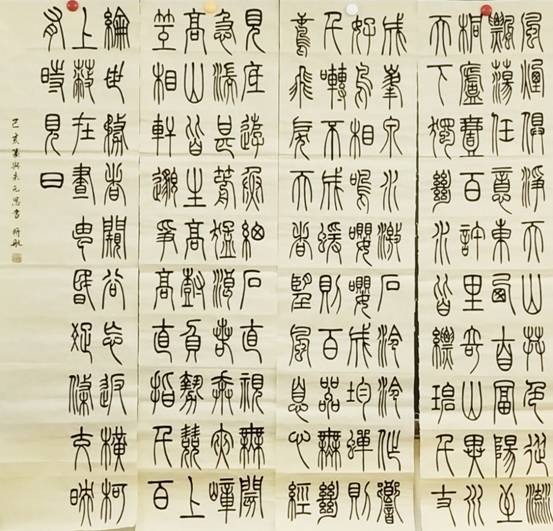 風煙俱淨天山共色從流
飄蕩任意東西自富陽至
桐廬壹百許里奇山異水
天下獨絕水皆縹碧千丈
成峯泉水激石泠泠作響
好鳥相鳴嚶嚶成均蟬則
千囀不窮猨則百嘂無絕
鳶飛戾天者望風息心經
見底游魚細石直視無閡
急湍甚箭猛浪若奔夾嶂
高山皆生高樹負勢競上
互相軒邈爭高直指千百
綸世務者闚谷忘返橫柯
上蔽在晝猶昏疏條交映
有時見日
己亥 與朱元思書